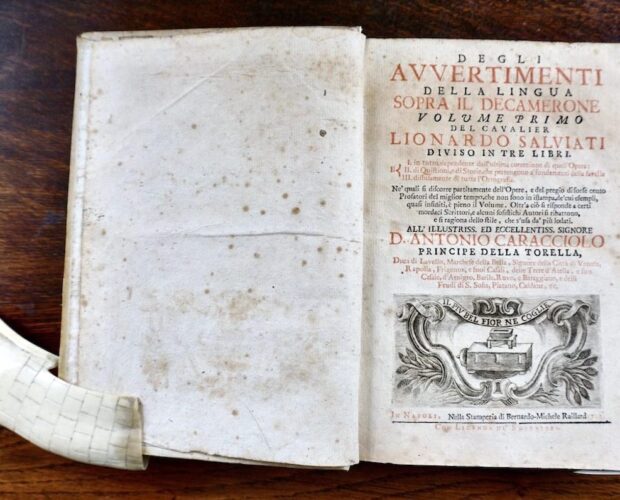 DEGLI
AVVERTIMENTI
DELLA LINGUA
SOPRA IL DECAMERONE
VOLUME PRIMO
DEL CAVALIER
LIONARDO SALVIATI
DIVISO IN TRE LIBRI.
I. in tutto dependente dall'ultima correzione di quell'Opera:
II. di Quistioni, e di Storie, che pertengono a' fondamenti della favella
III. distesamente di tutta l'Ortografia.
Ne' quali si discorre partitamente dell'Opere, e del pregio di forse cento
Prosatori del miglior tempo, che non sono in istampa, de' cui esempli,
quasi infiniti, è pieno il Volume. Oltr'a ciò si risponde a certi
mordaci Scrittori, e alcuni sofistichi Autori si ribattono,
e si ragiona dello stile, che s'usa da' più lodati.
ALL'ILLUSTRISS. ED ECCELLENTISS. SIGNORE
D. ANTONIO CARACCIOLO
PRINCIPE DELLA TORELLA,
Duca di Lavello, Marchese della Bella, Signore della Città di Venosa,
Rapolla, Frigento, e suoi Casali, delle Terre d'Atella, e suo
Casale, Barile, Ruvo, e
Feudi di S. Sofia, &c.
IL PIV BEL FIOR NE COGLIE
IN NAPOLI, Nella Stamperia di Bernardo-Michele Raillard
CON LICENZA DE' SUPERIORI.